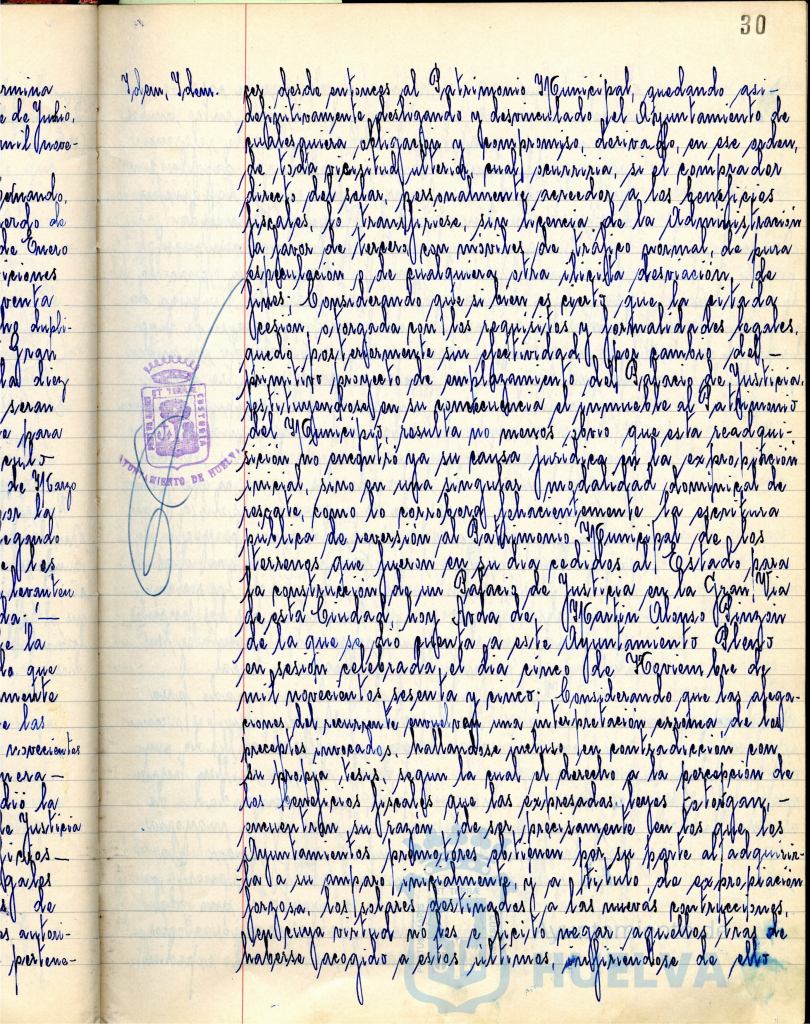 30
Idem, Idem.
cer desde entonces al Patrimonio Municipal, quedando asi-
definitivamente desligando y desvinculado el Ayuntamiento de
cualesquiera obligación y compromiso, derivado, en ese orden,
de toda vicisitud ulterior, cual ocurriria, si el comprador
directo del solar, personalmente acreedor a los beneficios
fiscales, lo transfiriese, sin licencia de la Administración
a favor de tercero con moviles de tráfico normal, de pura
especulación o de cualquiera otra ilicita desviación, de
fines; Considerando que si bien es cierto que la citada
cesión, otorgada con los requisitos y formalidades legales,
quedó posteriormente sin efectividad, por cambio del-
primitivo proyecto de emplazamiento del Palacio de Justicia,
restituyendose en su consecuencia el inmueble al Patrimonio
del Municipio, resulta no menos obvio que esta readqui-
sición no encontró ya su causa juridica en la expropiación
inicial, sino en una singular modalidad dominical de
rescate, como lo corrobora fehacientemente la escritura
pública de reversión al Patrimonio Municipal de los
terrenos que fueron en su dia cedidos al Estado para
la construcción de un Palacio de Justicia en la Gran Via
de esta Ciudad, hoy Avda de Martin Alonso Pinzón
de la que se dió cuenta a este Ayuntamiento Pleno
en sesión celebrada el dia cinco de Noviembre de
mil novecientos sesenta y cinco; Considerando que las alega-
ciones del recurrente envuelven una interpretación erronea de los
preceptos invocados, hallandose incluso en contradiccion con
su propia tesis, segun la cual el derecho a la percepción de
los beneficios fiscales que las expresadas leyes otorgan,-
encuentran su razón de ser, precisamente en los que los
Ayuntamientos promotores obtienen por su parte al adquirir-
a su amparo, inicialmente y a titulo de expropiación
forzosa, los solares destinados a las nuevas contrucciones,
en cuya virtud no les es licito negar aquellos tras de
haberse acogido a estos ultimos, infiriendose de ello
AYUNTAMIENTO DE HUELVA
HUELVA
rmina
e de Junio,
mil nove-
ernando,
erdo de
de Enero
iciones
venta
dupli-
Gran
la diez
seran
e para
de Marzo
por la
egando
e les
levanten
da:-
e la
lo que
mente
e las
novecientos
nera-
dió la
e Justicia
icios-
gales
s de
as autori-
pertene-